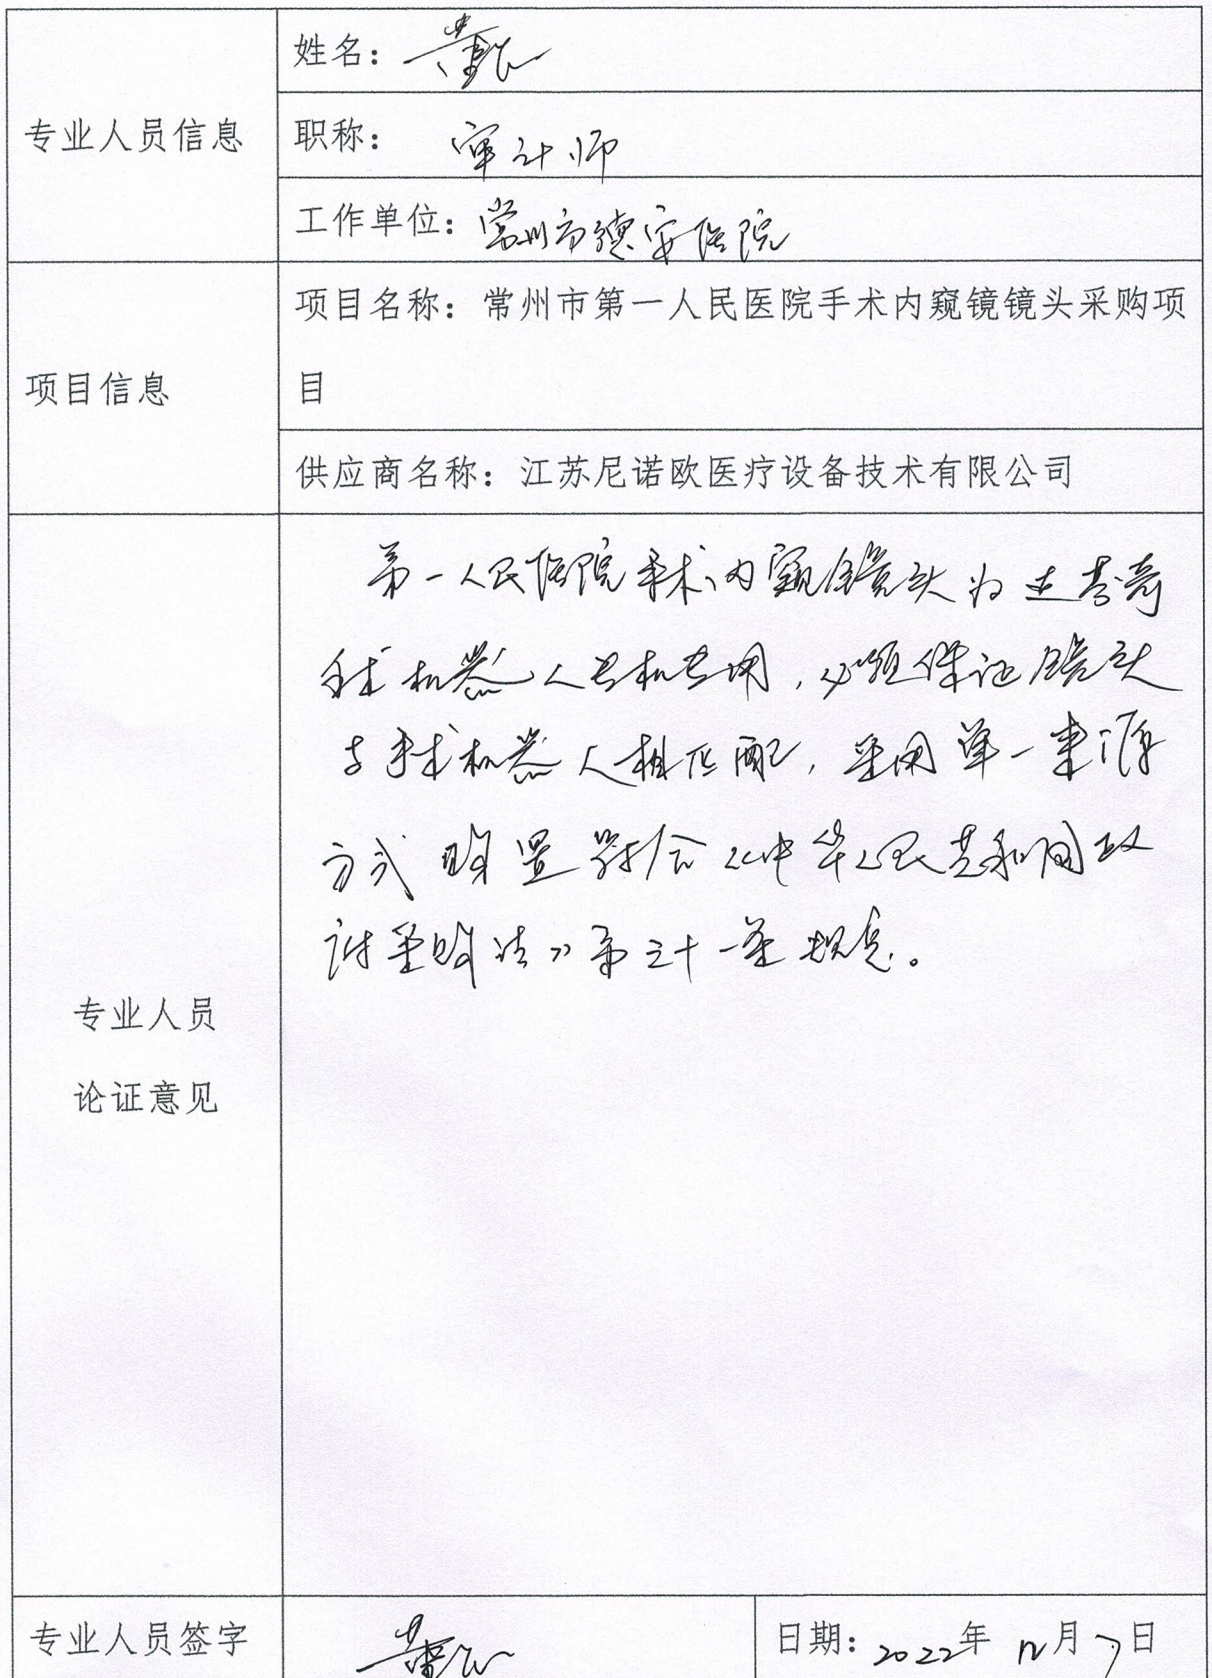 姓名：
专业人员信息
职称：审计师
工作单位：常州市德安医院
项目名称：常州市第一人民医院手术内窥镜镜头采购项
项目信息
目
供应商名称：江苏尼诺欧医疗设备技术有限公司
第一人民医院手术内窥镜头为达芬奇
手术机器人专机专用，必须保证镜头
与手术机器人相匹配，采用单一来源
方式购置符合《中华人民共和国政
府采购法》第三十一条规定。
专业人员
论证意见
专业人员签字
日期：2022年12月7日